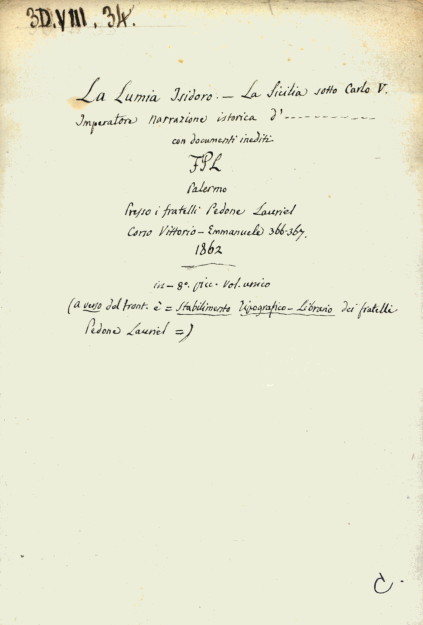 3D.VIII.34.
La Lumia Isidoro. — La Sicilia sotto Carlo V.
Imperatore narrazione istorica d' - - - - - - - - - -
con documenti inediti
FPL
Palermo
Presso i fratelli Pedone Lauriel
Corso Vittorio - Emmanuele 366-367.
1862
in - 8º. picc. Vol. unico
(a verso del front. è = Stabilimento Tipografico - Librario dei fratelli
Pedone Lauriel =)
C.